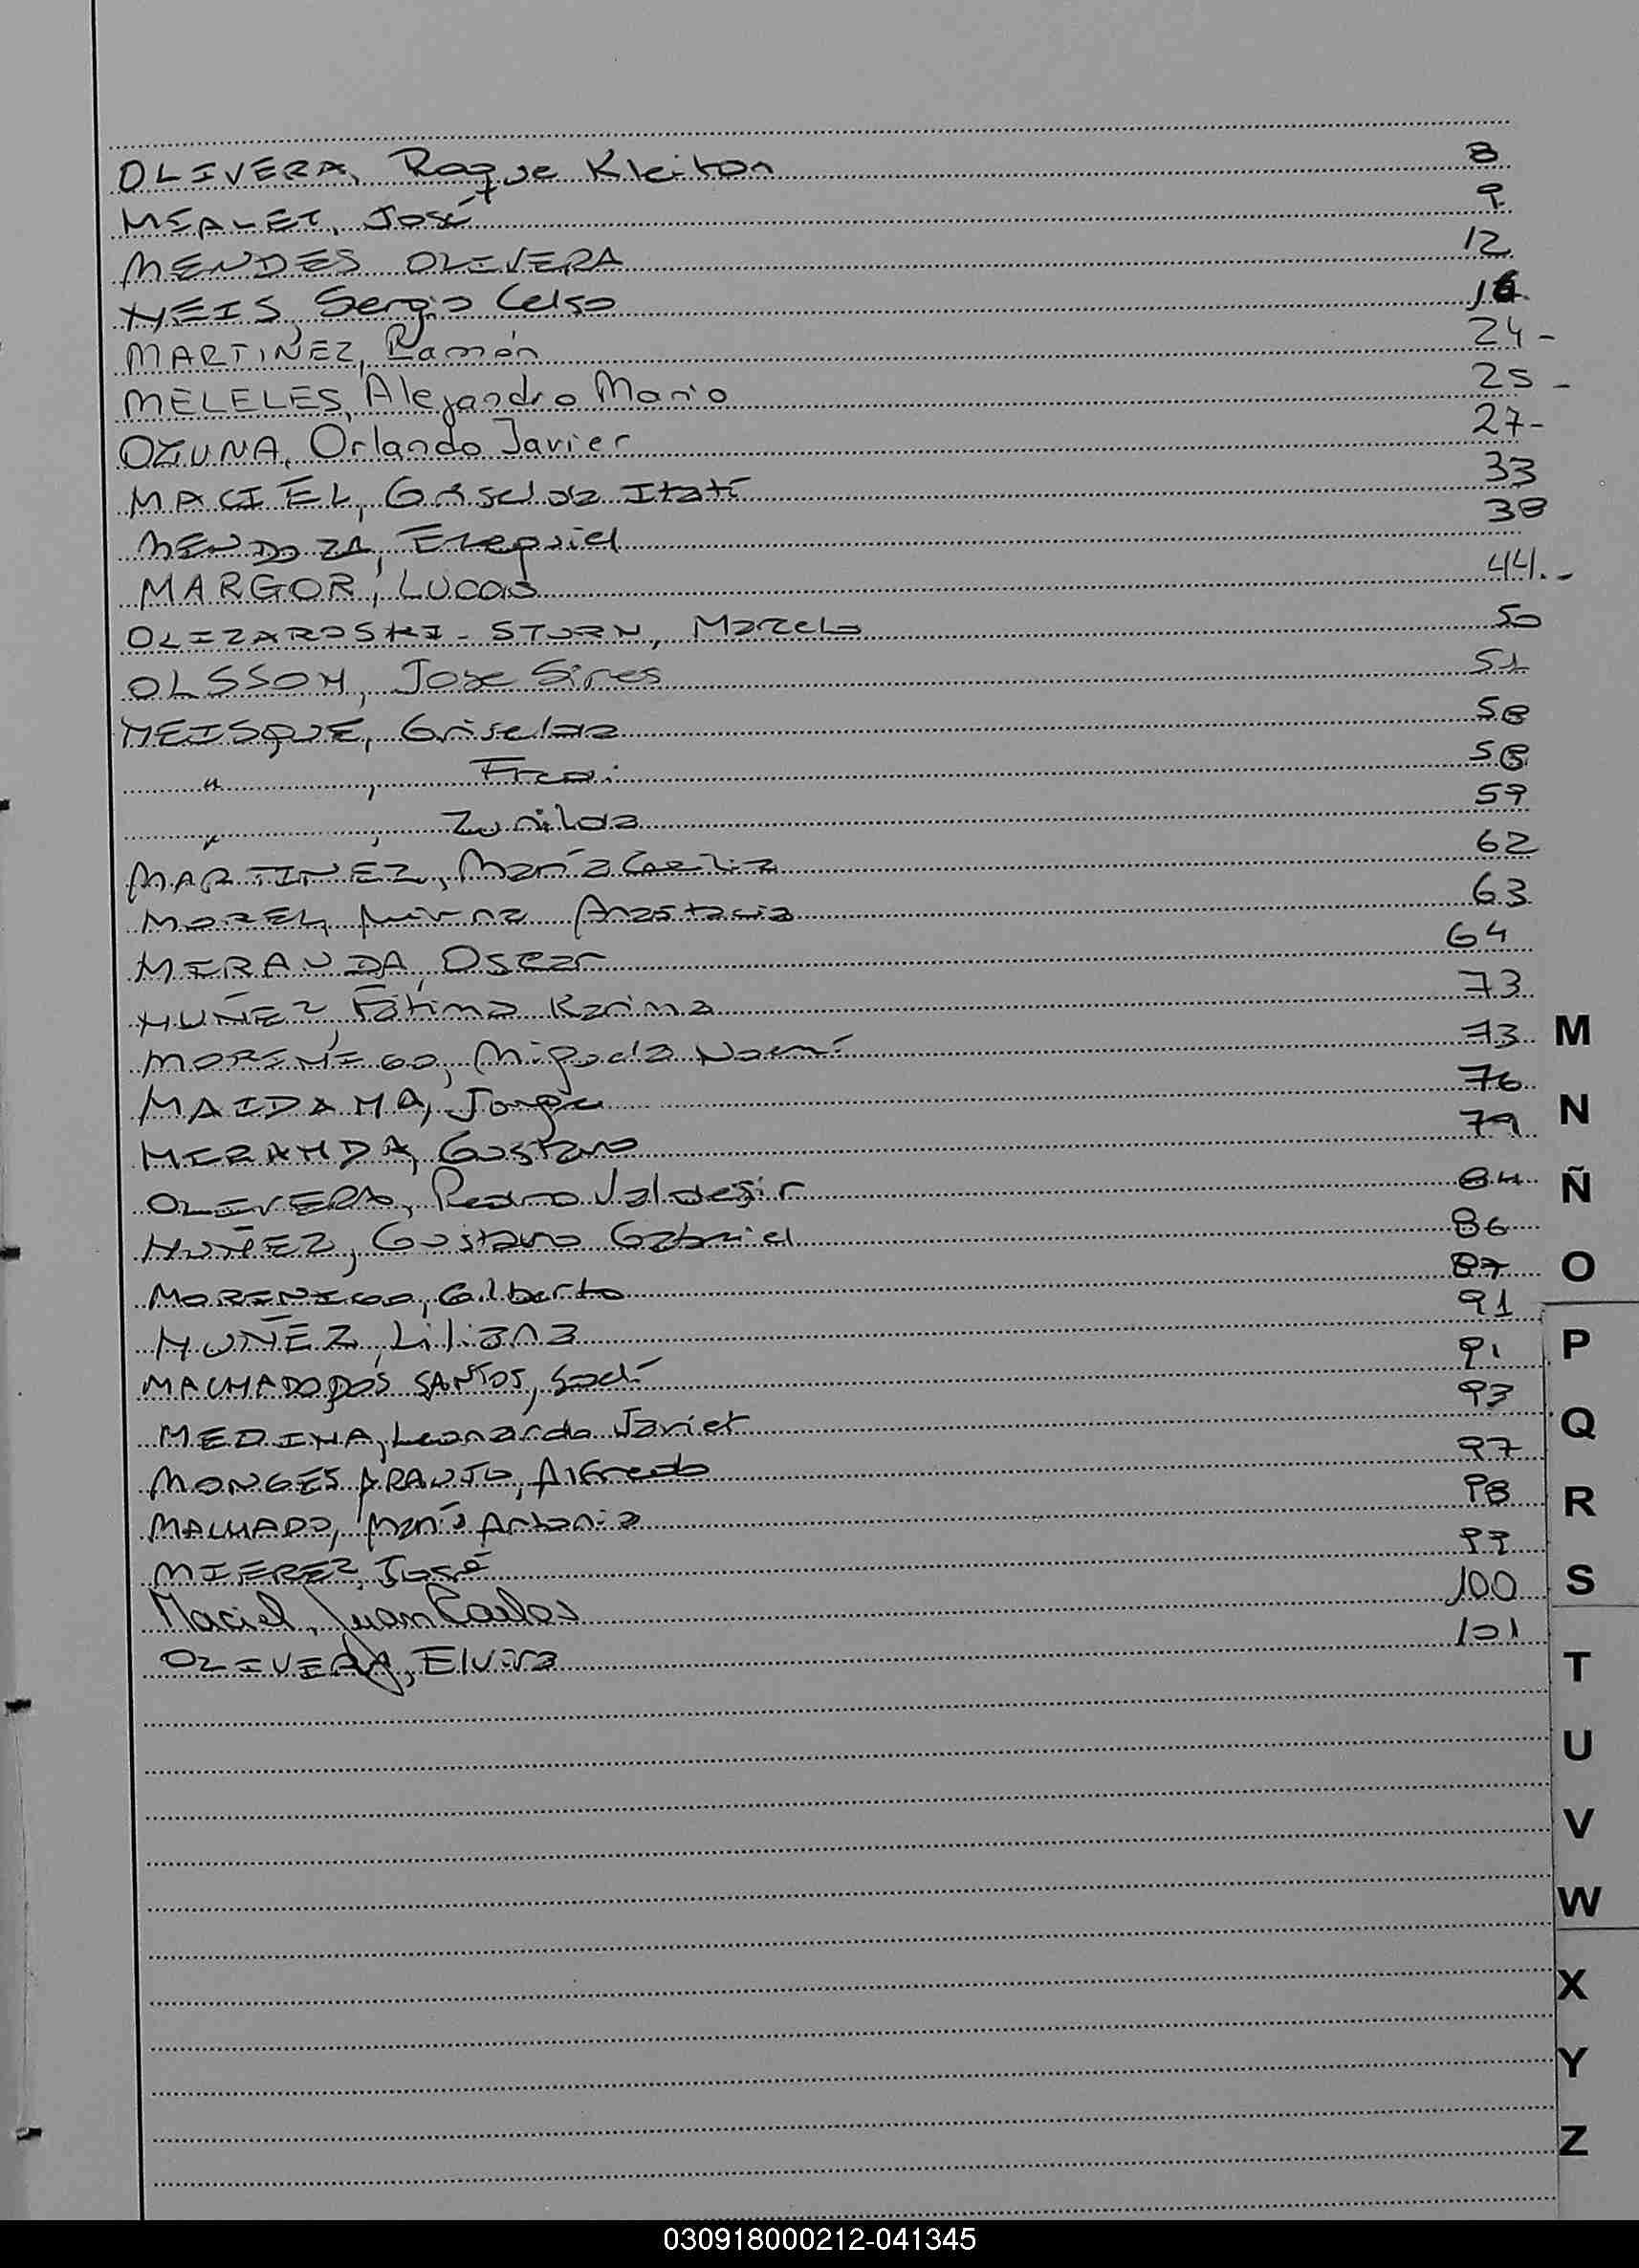 OLIVERA, Roque Kleiton 8
MEALET, José 9
MENDES OLIVERA 12
NEIS, Sergio Celso 16
MARTINEZ, Ramón 24-
MELELES, Alejandro Mario 25-
OZUNA, Orlando Javier 27-
MACIEL, Griselda Itatí 33
MENDOZA, Ezequiel 38
MARGOR, Lucas 44.-
OLIZAROSKI-STURN, Marcelo 50
OLSSON, Jose Sires 51
NEISQUE, Griselda 58
" , 58
" , Zunilda 59
MARTINEZ, María 62
MOREL, Mirna Anastacia 63
MIRANDA, Oscar 64
NUÑEZ, Fátima Karina 73
MORINIGO, Miguela Noemí 73
MAIDANA, Jorge 76
MIRANDA, Gustavo 79
OLIVERA, Pedro Valdesir 84
NUÑEZ, Gustavo Gabriel 86
MORINIGO, Gilberto 87
NUÑEZ, Liliana 91
MACHADO DOS SANTOS, 91
MEDINA, Leonardo Javier 93
MONGES ARAUJO, Alfredo 97
MACHADO, María Antonia 98
MIEREZ, José 99
Maciel, Juan Carlos 100
OLIVERA, Elvira 101
M
N
Ñ
O
P
Q
R
S
T
U
V
W
X
Y
Z
030918000212-041345